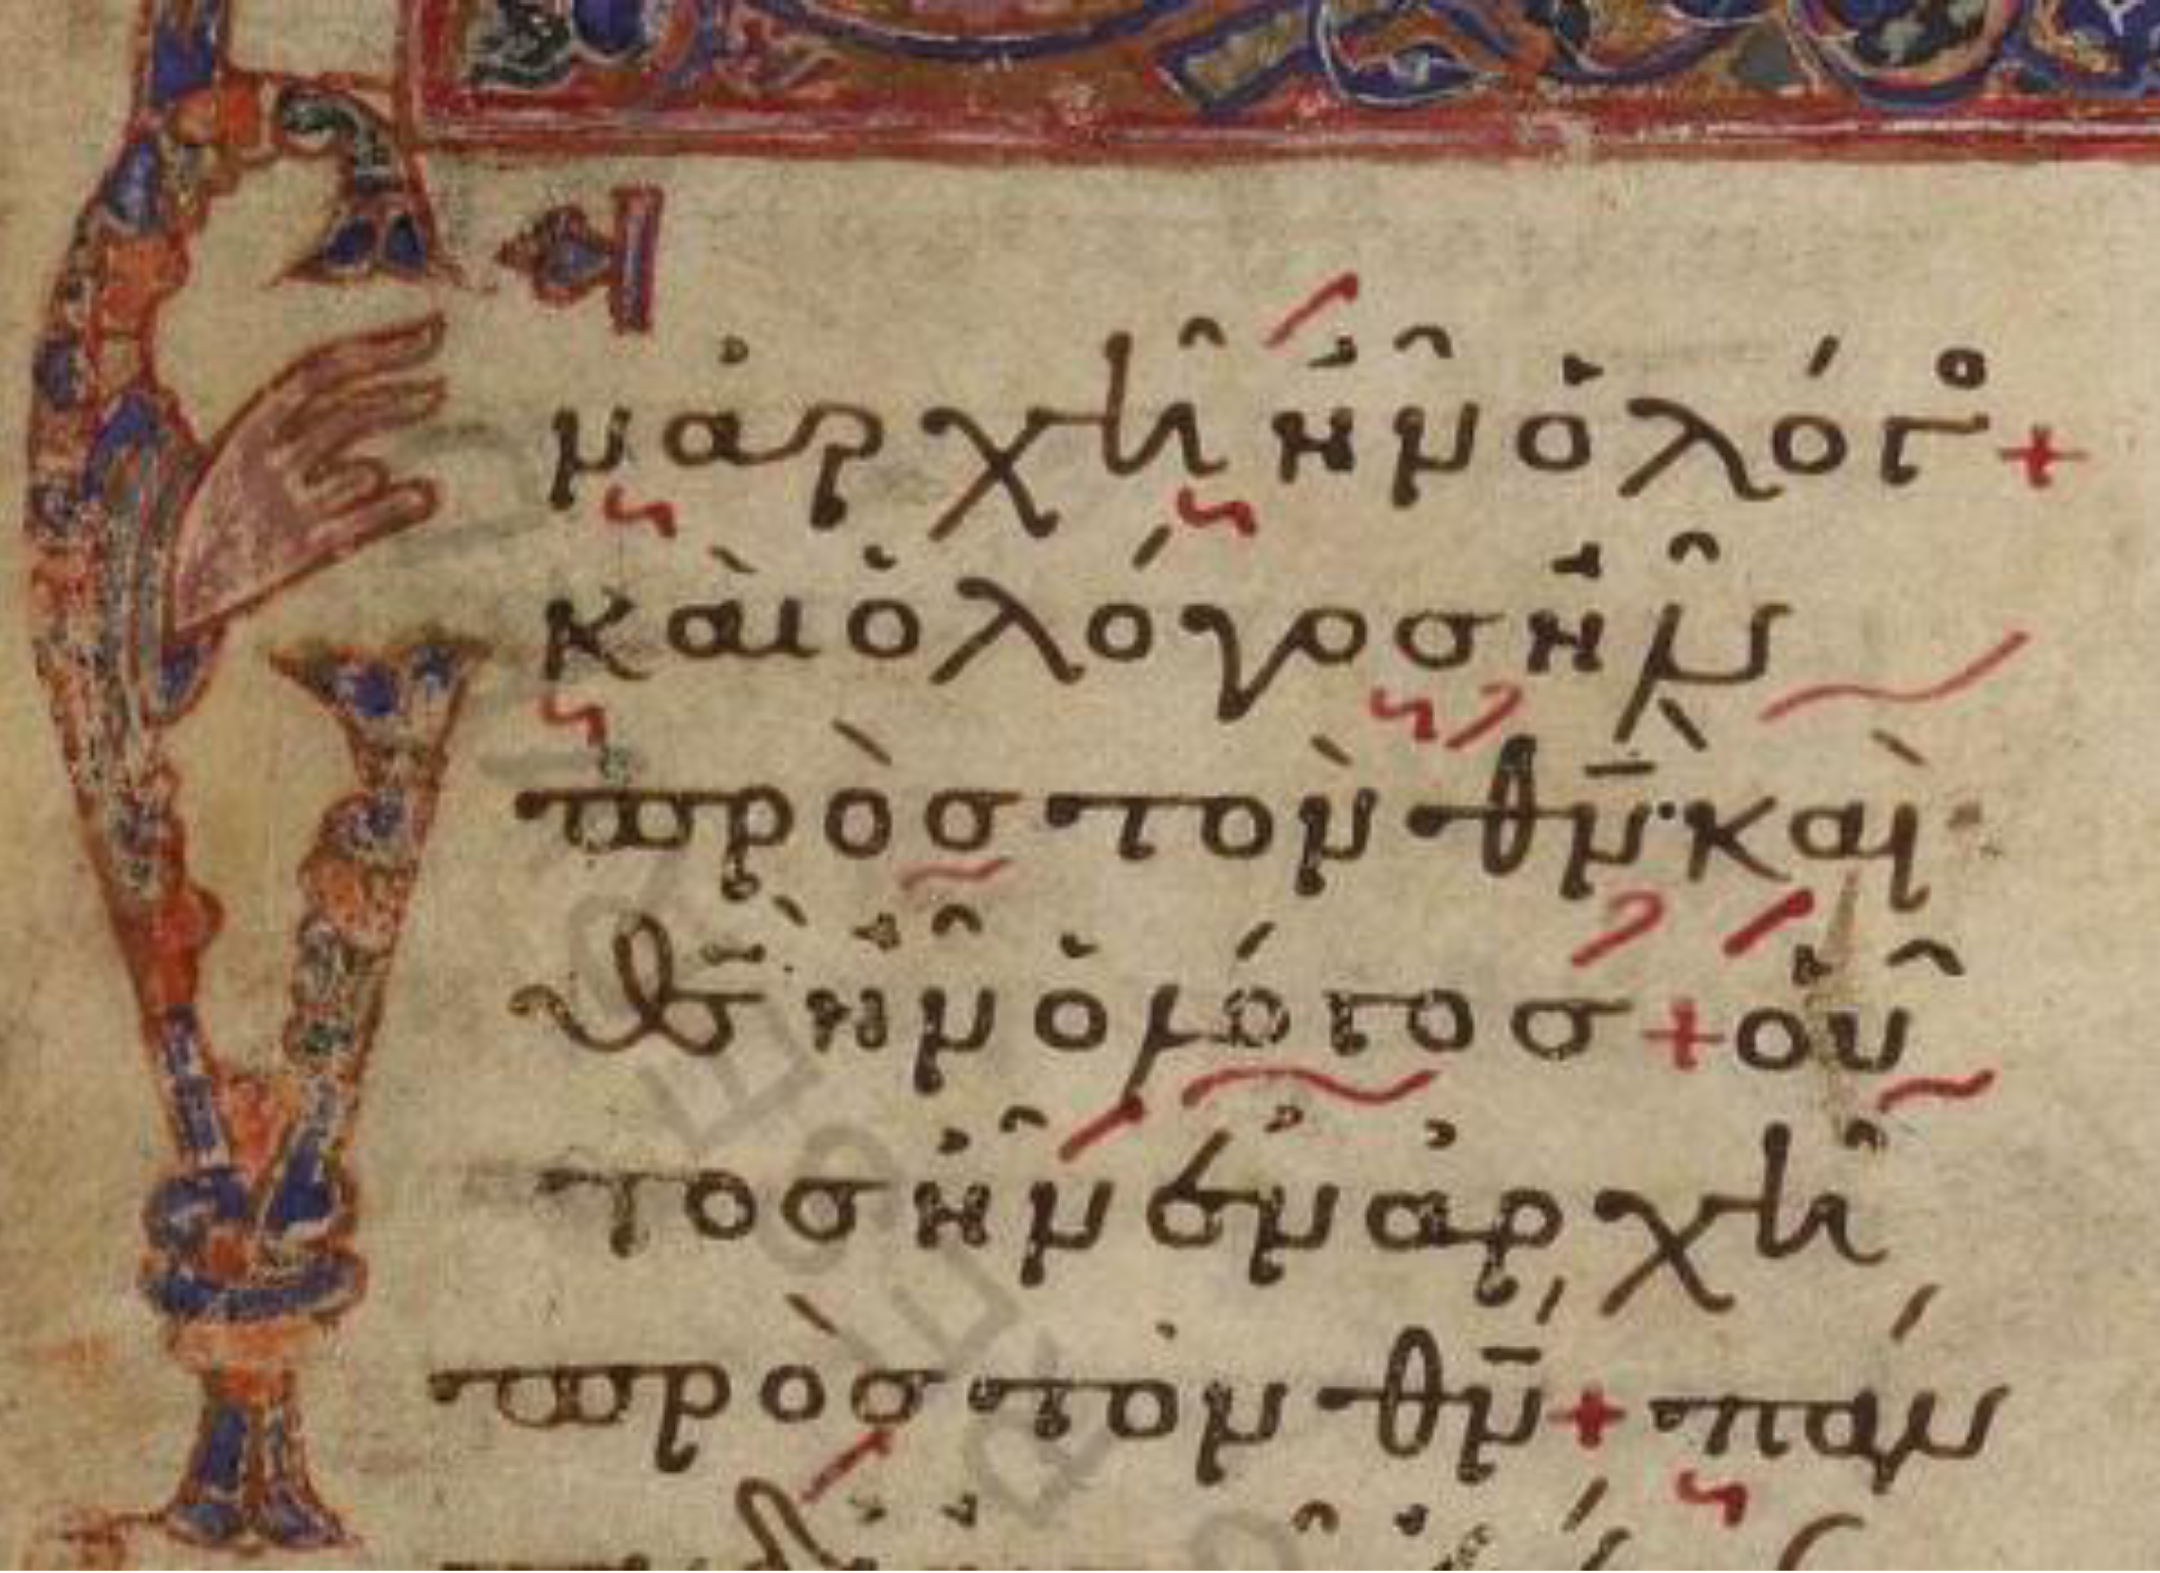 Ἐ
ν ἀρχῆ ἦν ὁ λόγο +
καὶ ὁ λόγος ἦν
πρὸς τὸν θν· καὶ
θς ἦν ὁ λόγος + οὗ
τος ἦν ἐν ἀρχῆ
πρὸς τὸν θν + πάν